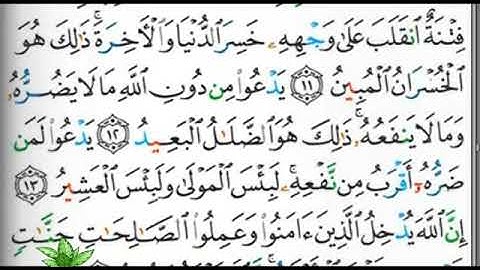 فِتْنَةٌ ٱنقَلَبَ عَلَىٰ وَجْهِهِۦ خَسِرَ ٱلدُّنْيَا وَٱلْأَخِرَةَ ۚ ذَٰلِكَ هُوَ
ٱلْخُسْرَانُ ٱلْمُبِينُ ١١ يَدْعُوا۟ مِن دُونِ ٱللَّهِ مَا لَا يَضُرُّهُۥ
وَمَا لَا يَنفَعُهُۥ ۚ ذَٰلِكَ هُوَ ٱلضَّلَٰلُ ٱلْبَعِيدُ ١٢ يَدْعُوا۟ لَمَن
ضَرُّهُۥٓ أَقْرَبُ مِن نَّفْعِهِۦ ۚ لَبِئْسَ ٱلْمَوْلَىٰ وَلَبِئْسَ ٱلْعَشِيرُ ١٣
إِنَّ ٱللَّهَ يُدْخِلُ ٱلَّذِينَ ءَامَنُوا۟ وَعَمِلُوا۟ ٱلصَّٰلِحَٰتِ جَنَّٰتٍ